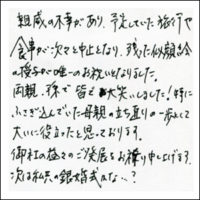 親戚の不幸があり、予定していた旅行や
食事が次々と中止となり、残った似顔絵
の授与が唯一のお祝いとなりました。
両親、孫で皆で大笑いしました！特に
ふさぎ込んでいた母親の立ち直りの一歩として
大いに役立ったと思っております。
御社の益々のご発展をお祈り申し上げます。
次は私共の銀婚式かな…？